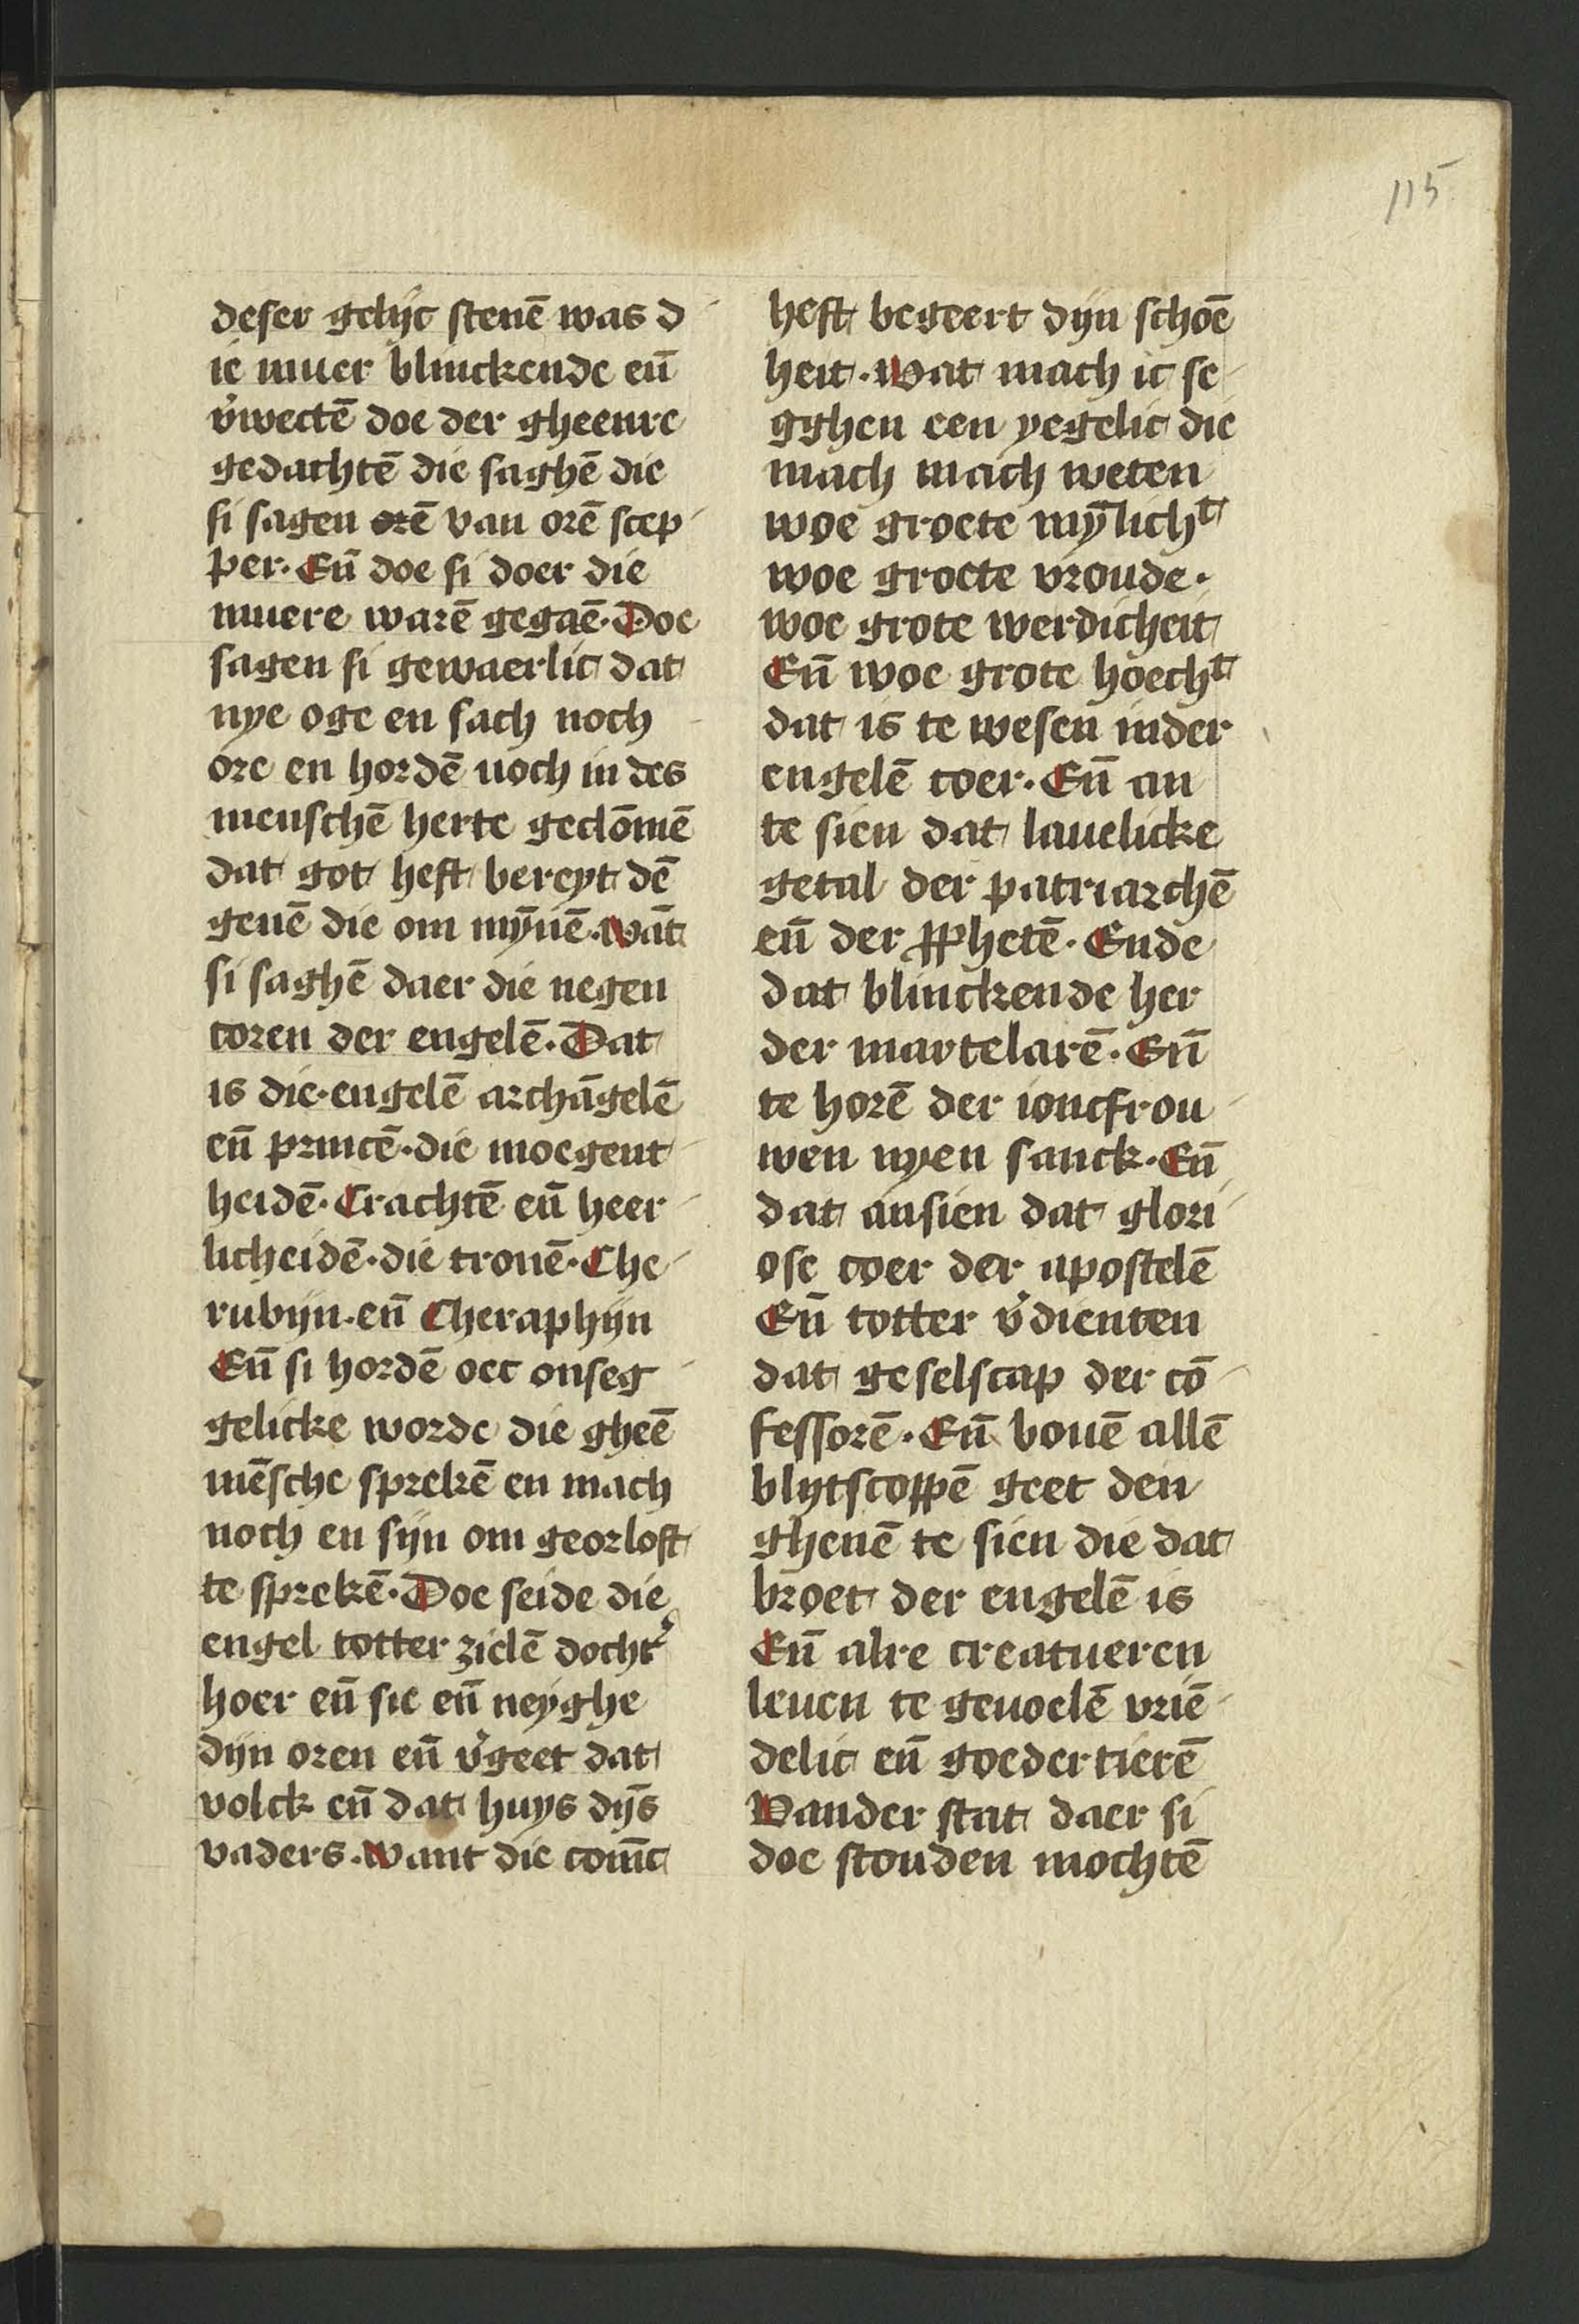 115
deser gelijc stenē was d
ie muer blinckende eñ
v̾wectē doe der gheenre
gedachtē die saghē die
si sagen orē van orē scep
per. Eñ doe si doer die
muere warē gegaē. Doe
sagen si gewaerlic dat
nye oge en sach noch
ore en hordē noch in des
menschē herte geclōmē
dat got heft bereyt dē
genē die om mȳnē. wāt
si saghē daer die negen
coren der engelē. Dat
is die. engelē archāgelē
eñ princē. die moegent
heidē. Crachtē eñ heer
licheidē. die tronē. Che
rubijn. eñ Cheraphijn
Eñ si hordē oec onseg
gelicke worde die gheē
mēsche sprekē en mach
noch en sijn om georloft
te sprekē. Doe seide die
engel totter zielē docht̾
hoer eñ sie eñ neyghe
dijn oren eñ v̾geet dat
volck eñ dat huys dijs̄
vaders. want die com̄c
heft begeert dijn schoē
heit. wat mach ic se
gghen een yegelic die
mach mach weten
woe groete mȳlichᵗ
woe groete vroude.
woe grote werdicheit
Eñ woe grote hoechᵗ
dat is te wesen inder
engelē coer. Eñ an
te sien dat lauelicke
getal der patriarchē
eñ der ꝓphetē. Ende
dat blinckende her
der martelarē. Eñ
te horē der ioncfrou
wen nyen sanck. Eñ
dat ansien dat glori
ose coer der apostelē
Eñ totter v̾dienten
dat geselscap der cō
fessorē. Eñ bouē allē
blijtscoppē geet den
ghenē te sien die dat
broet der engelē is
Eñ alre creatueren
leuen te geuoelē vriē
delic eñ goedertierē
Vander stat daer si
doe stonden mochtē